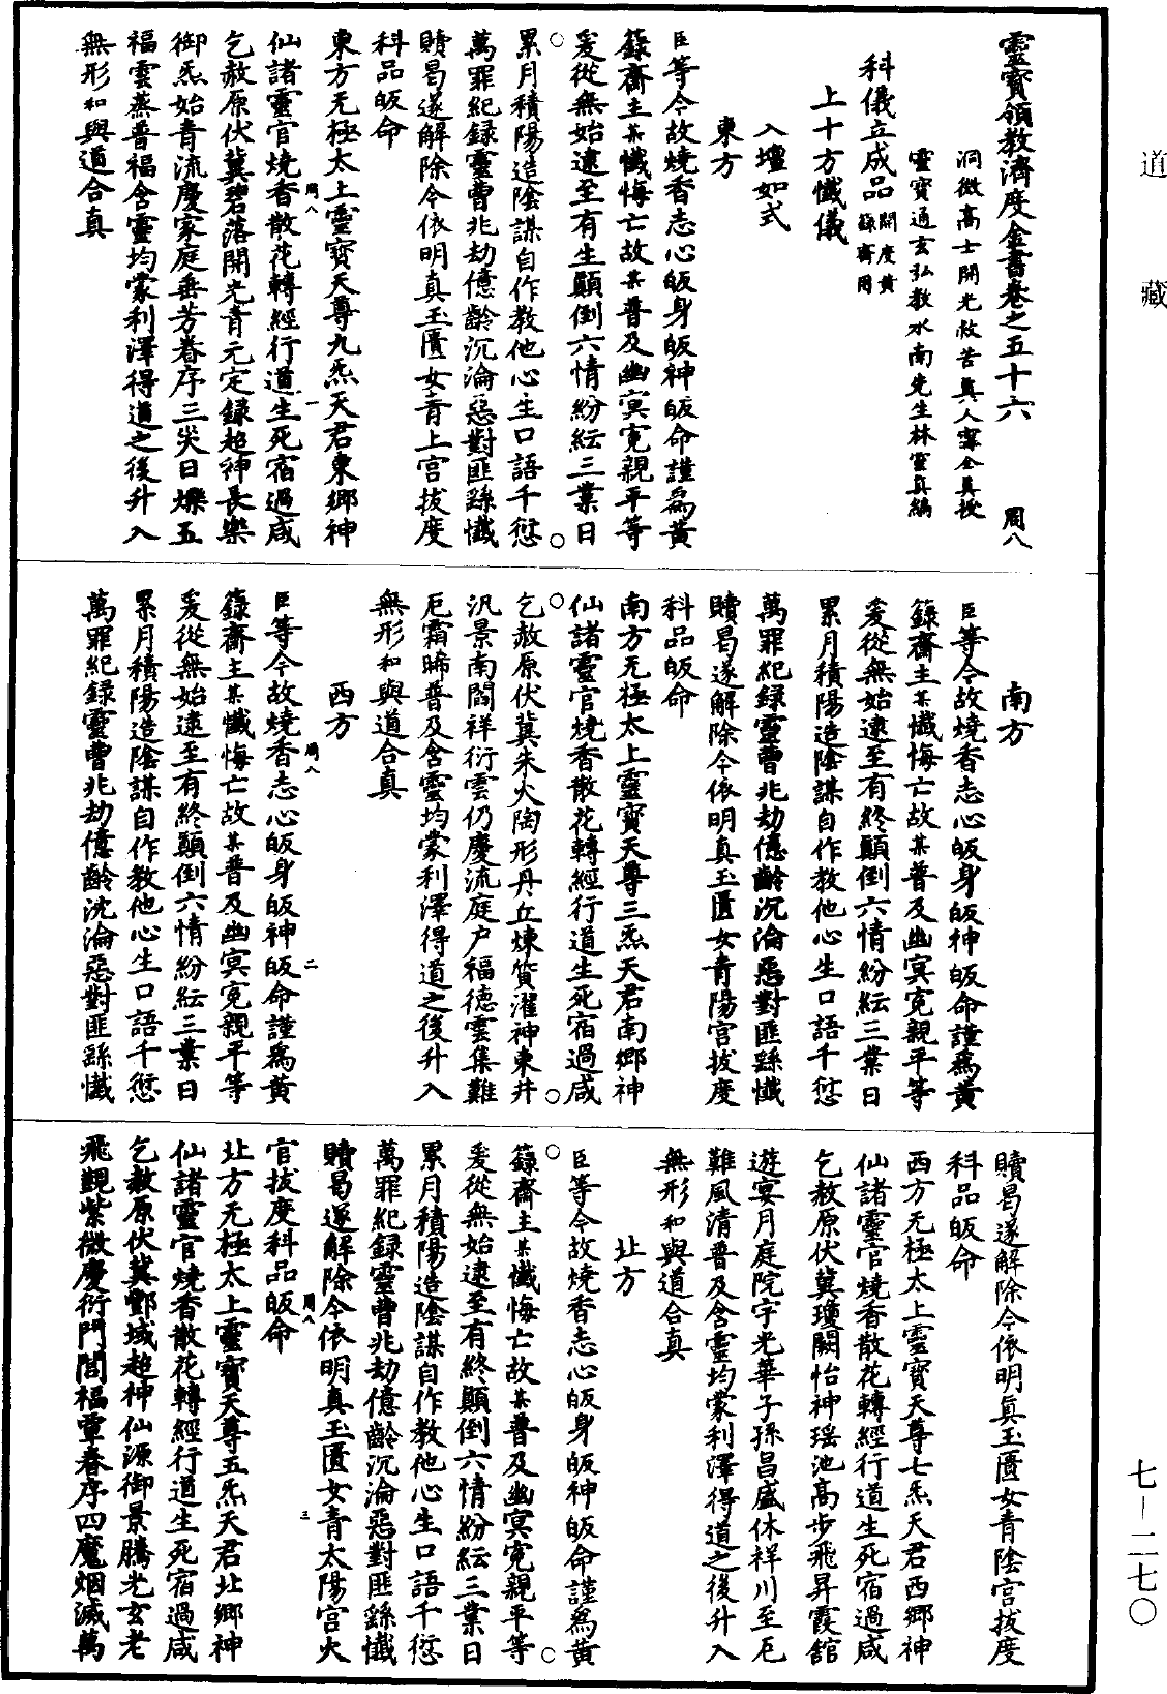 道藏
靈寶領教濟度金書卷之五十六　周八
洞微高士開光救苦真人甯全真授
靈寶通玄弘教水南先生林靈真編
科儀立成品開度黃籙齋用
上十方懺儀
入壇如式
東方
臣等今故燒香志心皈身皈神皈命謹為黃
籙齋主某懺悔亡故某普及幽冥冤親平等
爰從無始逮至有生顛倒六情紛紜三業日
累月積陽造陰謀自作教他心生口語千愆
萬罪紀錄靈曹兆劫億齡沉淪惡對匪繇懺
贖曷遂解除今依明真玉匱女青上宮拔度
科品皈命
東方无極太上靈寶天尊九炁天君東鄉神
仙諸靈官燒香散花轉經行道生死宿過咸
乞赦原伏冀碧落開光青元定錄超神長樂
御炁始青流慶家庭垂芳眷序三災日爍五
福雲蒸普福含靈均蒙利澤得道之後升入
無形和與道合真
周八　一
南方
臣等今故燒香志心皈身皈神皈命謹為黃
籙齋主某懺悔亡故某普及幽冥冤親平等
爰從無始逮至有終顛倒六情紛紜三業日
累月積陽造陰謀自作教他心生口語千愆
萬罪紀錄靈曹兆劫億齡沉淪惡對匪繇懺
贖曷遂解除今依明真玉匱女青陽宮拔度
科品皈命
南方无極太上靈寶天尊三炁天君南鄉神
仙諸靈官燒香散花轉經行道生死宿過咸
乞赦原伏冀朱火陶形丹丘煉質濯神東井
汎景南閻祥衍雲仍慶流庭戶福德雲集難
厄霜晞普及含靈均蒙利澤得道之後升入
無形和與道合真
西方
臣等今故燒香志心皈身皈神皈命謹為黃
籙齋主某懺悔亡故某普及幽冥冤親平等
爰從無始逮至有終顛倒六情紛紜三業日
累月積陽造陰謀自作教他心生口語千愆
萬罪紀錄靈曹兆劫億齡沈淪惡對匪繇懺
周八　二
贖曷遂解除今依明真玉匱女青陰宮拔度
科品皈命
西方无極太上靈寶天尊七炁天君西鄉神
仙諸靈官燒香散花轉經行道生死宿過咸
乞赦原伏冀瓊闕怡神瑤池高步飛昇霞館
遊宴月庭院宇光華子孫昌盛休祥川至厄
難風清普及含靈均蒙利澤得道之後升入
無形和與道合真
北方
臣等今故燒香志心皈身皈神皈命謹為黃
籙齋主某懺悔亡故某普及幽冥冤親平等
爰從無始逮至有終顛倒六情紛紜三業日
累月積陽造陰謀自作教他心生口語千愆
萬罪紀錄靈曹兆劫億齡沉淪惡對匪繇懺
贖曷遂解除今依明真玉匱女青太陽宮火
官拔度科品皈命
北方无極太上靈寶天尊五炁天君北鄉神
仙諸靈官燒香散花轉經行道生死宿過咸
乞赦原伏冀酆域超神仙源御景騰光玄老
飛觀紫微慶衍門閭福覃眷序四魔烟滅萬
周八　三
七－二七〇